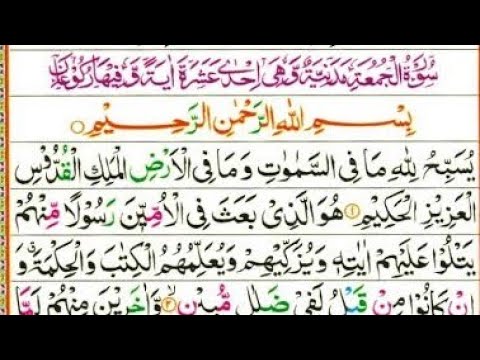 سُوۡرَةُ الۡجُمُعَةِ مَدَنِيَّةٌ وَّهِيَ اِحۡدٰى عَشَرَةَ اٰيَةً وَّفِيۡهَا رُكُوۡعَانِ
بِسۡمِ اللهِ الرَّحۡمٰنِ الرَّحِيۡمِ
يُسَبِّحُ لِلّٰهِ مَا فِى السَّمٰوٰتِ وَمَا فِى الۡاَرۡضِ الۡمَلِكِ الۡقُدُّوۡسِ
الۡعَزِيۡزِ الۡحَكِيۡمِ ۝۱ هُوَ الَّذِىۡ بَعَثَ فِى الۡاُمِّيّٖنَ رَسُوۡلًا مِّنۡهُمۡ
يَتۡلُوۡا عَلَيۡهِمۡ اٰيٰتِهٖ وَيُزَكِّيۡهِمۡ وَيُعَلِّمُهُمُ الۡكِتٰبَ وَالۡحِكۡمَةَ ۗ وَ
اِنۡ كَانُوۡا مِنۡ قَبۡلُ لَفِىۡ ضَلٰلٍ مُّبِيۡنٍ ۝۲ وَّاٰخَرِيۡنَ مِنۡهُمۡ لَمَّا